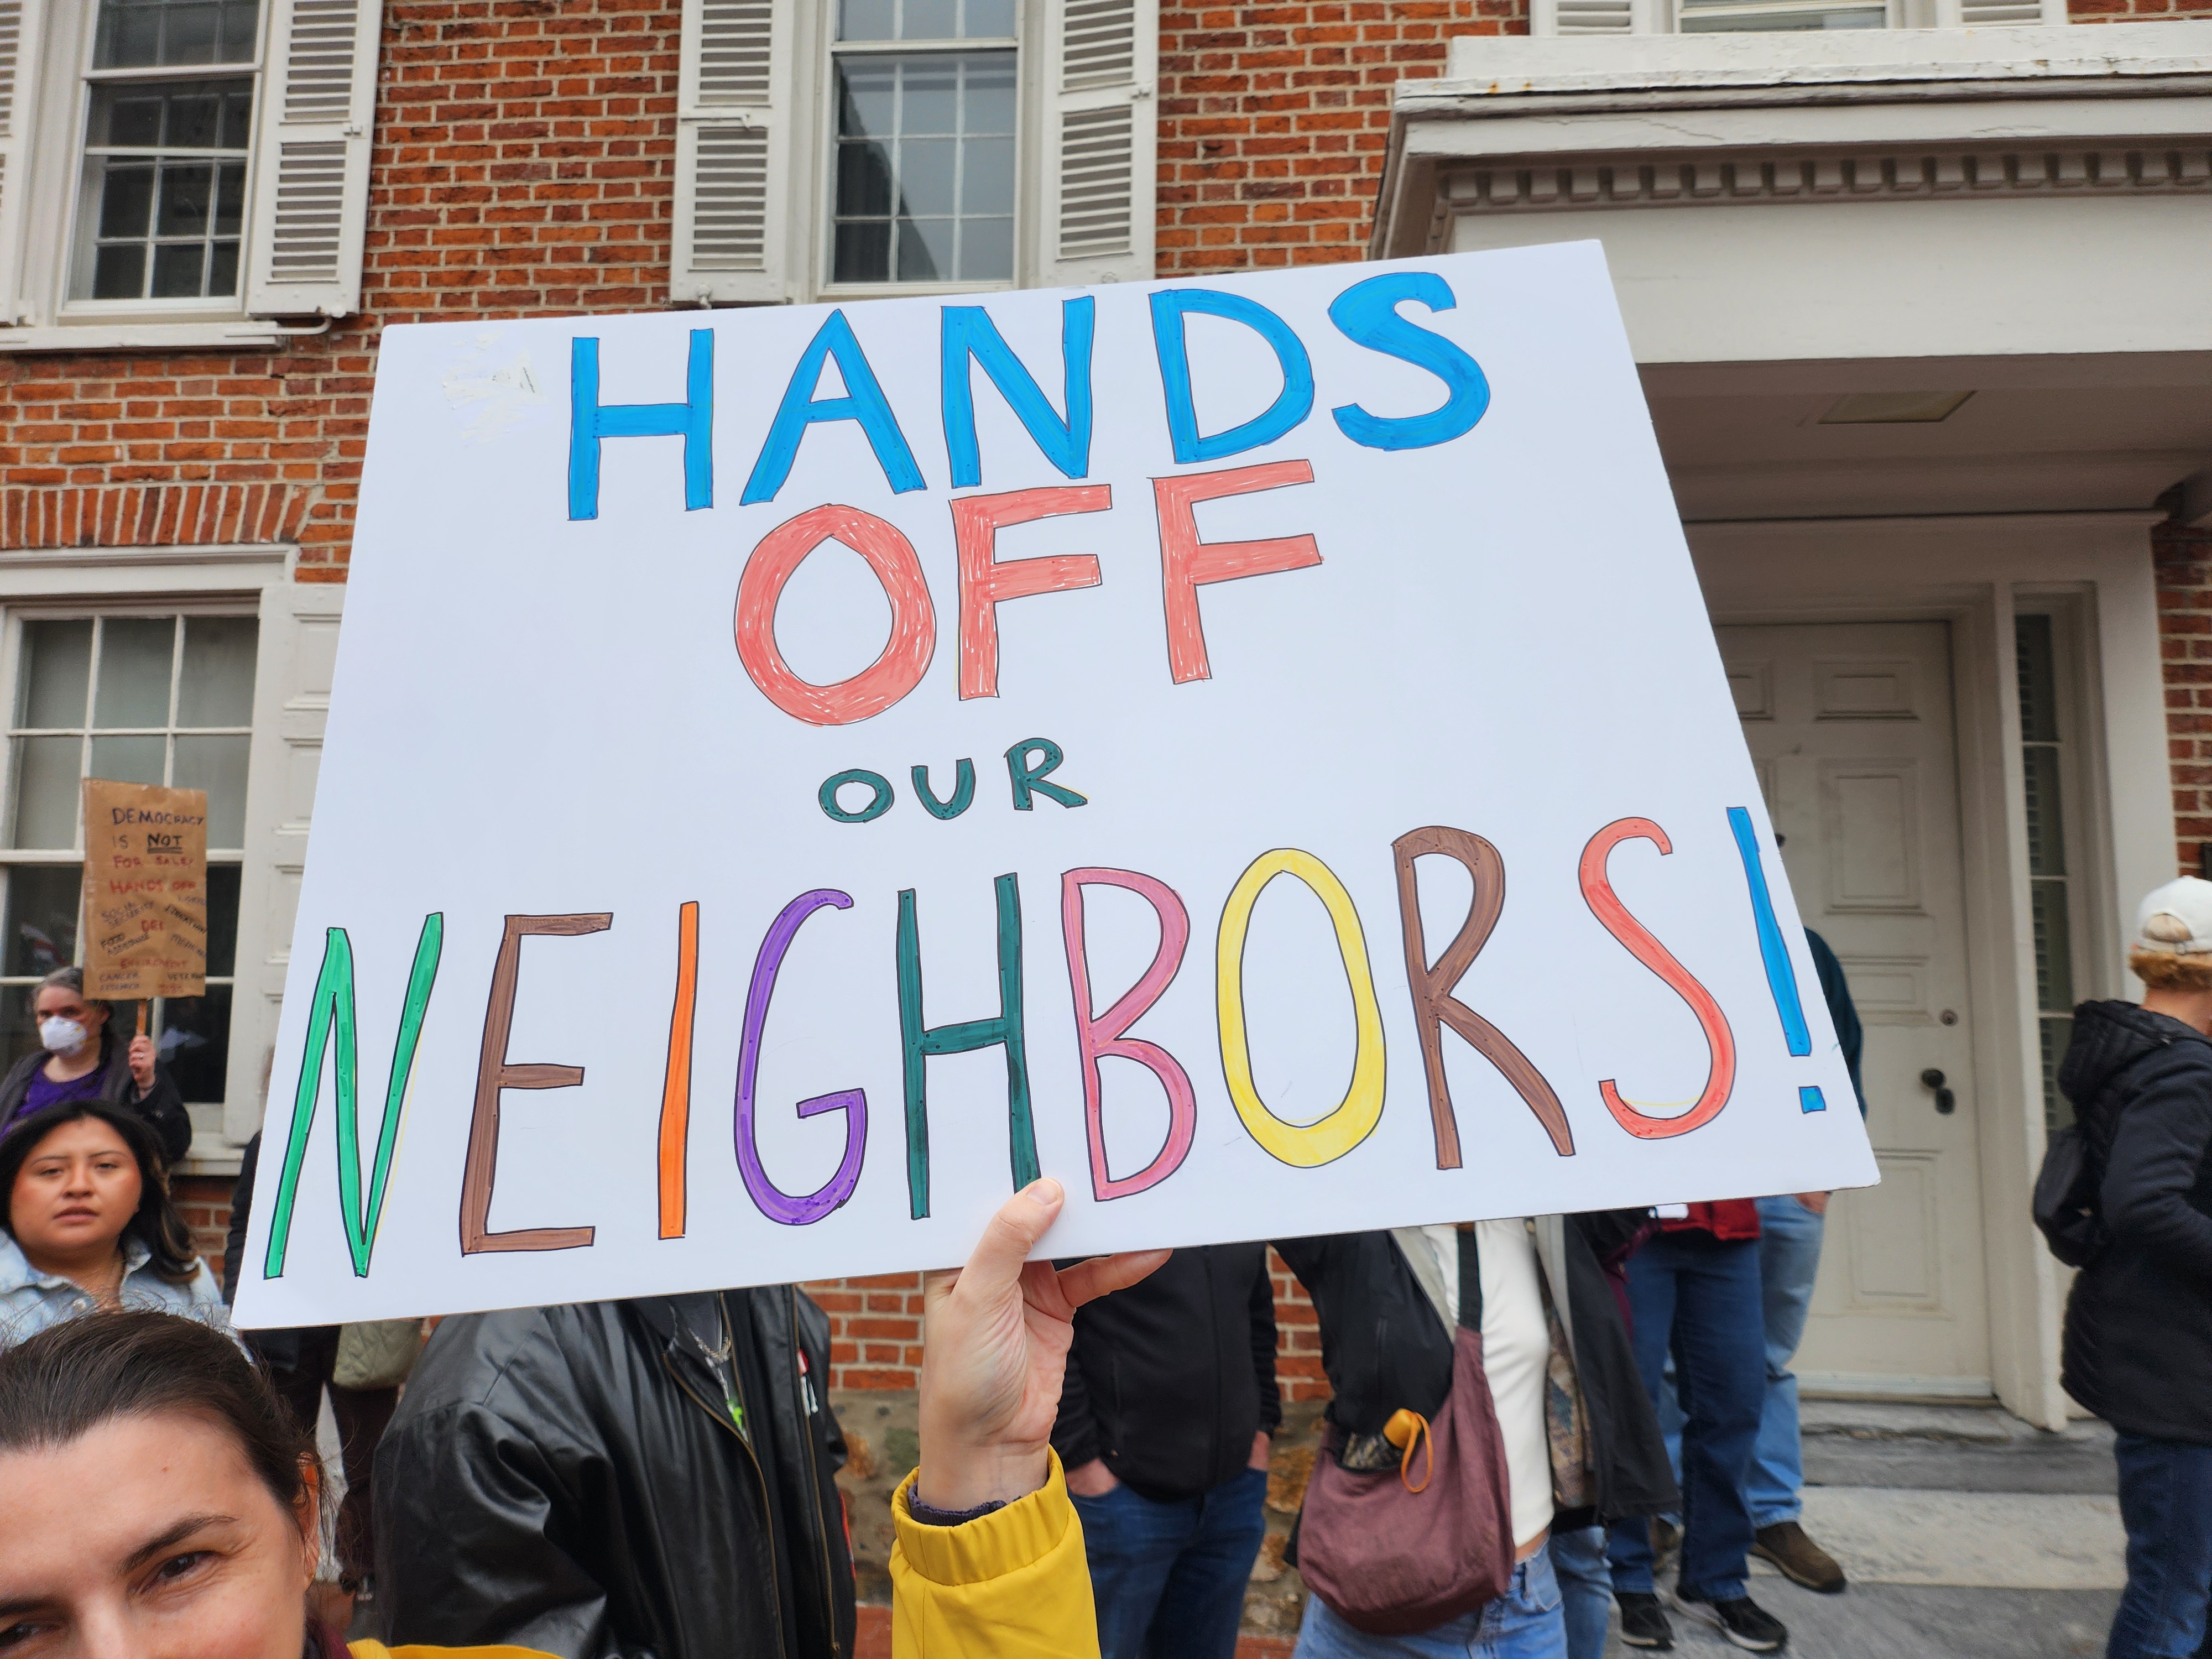 HANDS
OFF
OUR
NEIGHBORS!
DEMOCRACY
IS NOT
FOR SALE!
HANDS OFF
SOCIAL
SECURITY
DEI
FOOD
ASSISTANCE
ENVIRONMENT
CANCER
RESEARCH